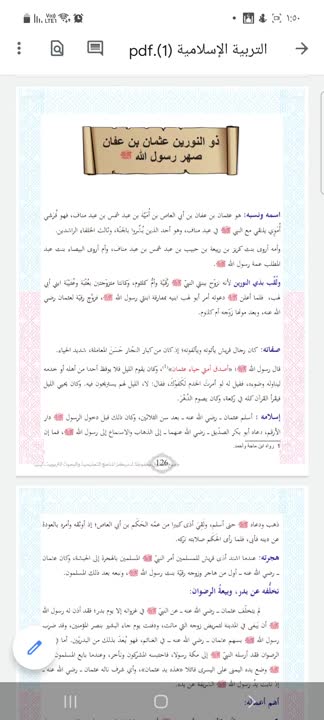 ١:٥٠
التربية الإسلامية (1).pdf
ذو النورين عثمان بن عفان
صهر رسول الله ﷺ
اسمه ونسبه: هو عثمان بن عفان بن أبي العاص بن أميّة بن عبد شمس بن عبد مناف، فهو قرشي
أموي يلتقي مع النبي ﷺ في عبد مناف، وهو أحد الذين بُشّروا بالجنة، وثالث الخلفاء الراشدين.
وأمه أروى بنت كريز بن ربيعة بن حبيب بن عبد شمس بن عبد مناف، وأم أروى البيضاء بنت عبد
المطلب عمة رسول الله ﷺ.
ولُقّب بذي النورين لأنه تزوّج ببنتي النبيّ ﷺ رُقيّة وأمّ كلثوم، وكانتا متزوجتين بعُتْبَة وعُتَيْبَة ابني أبي
لهب، فلما أعلن ﷺ دعوته أمر أبو لهب ابنيه بمفارقة ابنتي رسول الله ﷺ، فزوّج رقيّة لعثمان رضي
الله عنه، وبعد موتها زوّجه أم كلثوم.
صفاته: كان رجال قريش يأتونه ويألفونه؛ إذ كان من كبار التجار حَسَنَ المعاملة، شديد الحياء.
قال رسول الله ﷺ: «أصدق أمتي حياء عثمان»، وكان يقوم الليل فلا يوقظ أحدا من أهله أو خدمه
ليناوله وضوءه، فقيل له لو أمرتَ الخدم لكفَوْك، فقال: لا، الليل لهم يستريحون فيه. وكان يحيي الليل
فيقرأ القرآن كله في ركعة، وكان يصوم الدَّهْر.
إسلامه: أسلم عثمان ـ رضي الله عنه ـ بعد سن الثلاثين، وكان ذلك قبل دخول الرسول ﷺ دار
الأرقم، دعاه أبو بكر الصدّيق ـ رضي الله عنهما ـ إلى الذهاب والاستماع إلى رسول الله ﷺ، فما إن
رواه ابن ماجة وأحمد.
126
ذهب ودعاه ﷺ حتى أسلم، ولقيَ أذى كبيرا من عمّه الحَكَم بن أبي العاص؛ إذ أوثقه وأمره بالعودة
عن دينه فأبى، فلما رأى الحكم صلابته تركه.
هجرته: عندما اشتد أذى قريش للمسلمين أمر النبيّ ﷺ المسلمين بالهجرة إلى الحبشة، وكان عثمان
ـ رضي الله عنه ـ أول من هاجر وزوجه رقيّة بنت رسول الله ﷺ، وتبعه بعد ذلك المسلمون.
تخلّفه عن بدر، وبيعة الرضوان:
لم يتخلّف عثمان ـ رضي الله عنه ـ عن النبيّ ﷺ في غزواته إلا يوم بدر؛ فقد أذن له رسول الله
ﷺ أن يبقى في المدينة لتمريض زوجه التي ماتت، ودفنت يوم جاء البشير بنصر المؤمنين، وقد ضرب
رسول الله ﷺ بسهم عثمان ـ رضي الله عنه ـ في الغنائم، فهو يُعدّ بذلك من البدريّين. أما في
الرضوان فقد أرسله النبي ﷺ إلى مكة رسولا، فاحتبسه المشركون وتأخر، وعندما بايع المسلمون
ﷺ وضع يده اليمنى على اليسرى قائلا: «هذه يد عثمان»، وأي شرف ناله عثمان ـ رضي الله عنه ـ
إذ نابت يدُ رسول الله ﷺ الشريفة عن يده.
أهم أعماله: